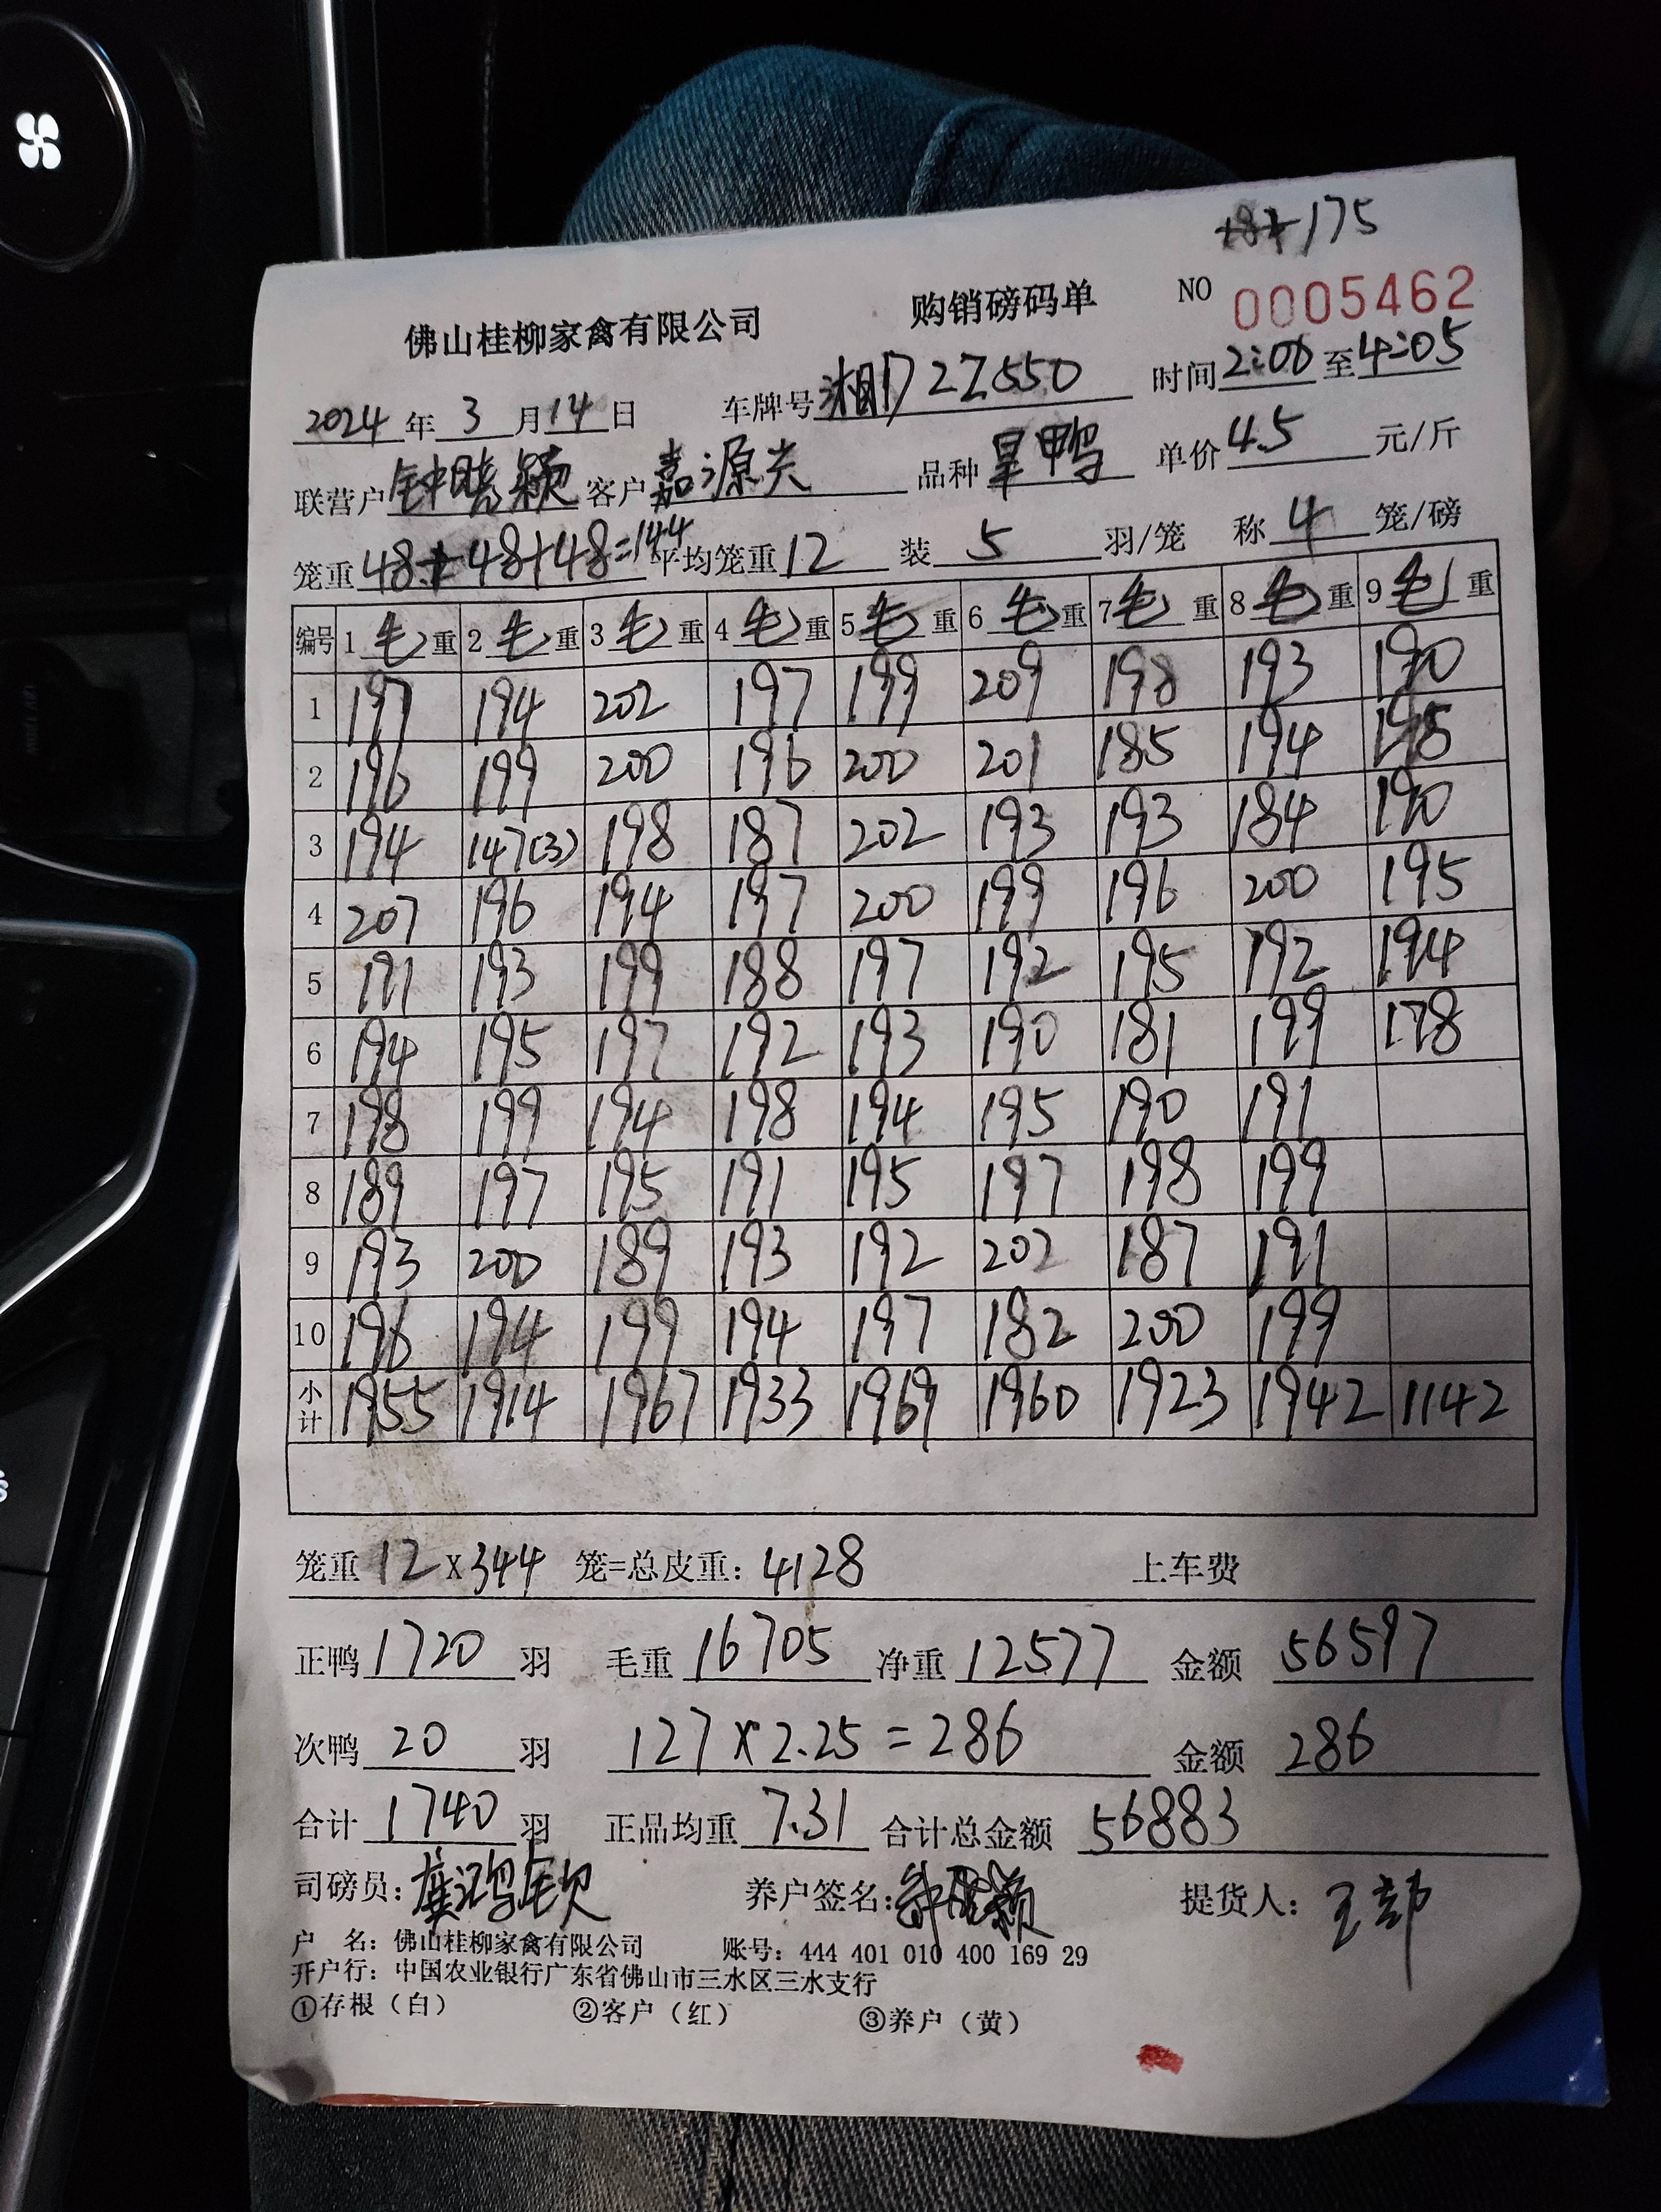 175
佛山桂柳家禽有限公司 购销磅码单 NO 0005462
2024年3月14日 车牌号湘D2Z550 时间2:06至4:05
联营户钟晓颖 客户嘉源 品种旱鸭 单价4.5元/斤
笼重48+48+48=144 平均笼重12 装5羽/笼 称4笼/磅
编号 1毛重 2毛重 3毛重 4毛重 5毛重 6毛重 7毛重 8毛重 9毛重
1 197 194 202 197 199 209 198 193 190
2 196 199 200 196 200 201 185 194 195
3 194 147(3) 198 187 202 193 193 184 190
4 207 196 194 197 200 199 196 200 195
5 191 193 199 188 197 192 195 192 194
6 194 195 197 192 193 190 181 199 178
7 198 199 194 198 194 195 190 191
8 189 197 195 191 195 197 198 199
9 193 200 189 193 192 202 187 191
10 196 194 199 194 197 182 200 199
小计 1955 1914 1967 1933 1969 1960 1923 1942 1142
笼重12×344 笼=总皮重：4128 上车费
正鸭1720羽 毛重16705 净重12577 金额56597
次鸭20羽 127×2.25=286 金额286
合计1740羽 正品均重7.31 合计总金额56883
司磅员： 养户签名：钟晓颖 提货人：
户 名：佛山桂柳家禽有限公司 账号：444 401 010 400 169 29
开户行：中国农业银行广东省佛山市三水区三水支行
①存根（白） ②客户（红） ③养户（黄）